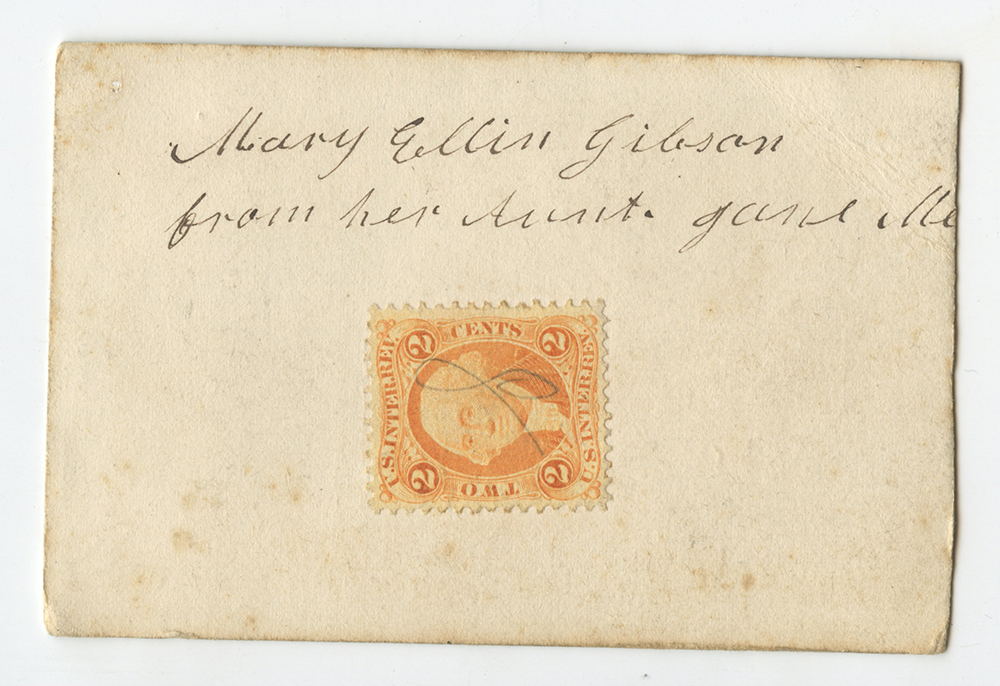 Mary Ellin Gibson
from her Aunt. Jane Me
2 CENTS 2
U.S. INTER. REV.
U.S. INTER. REV.
2 TWO 2